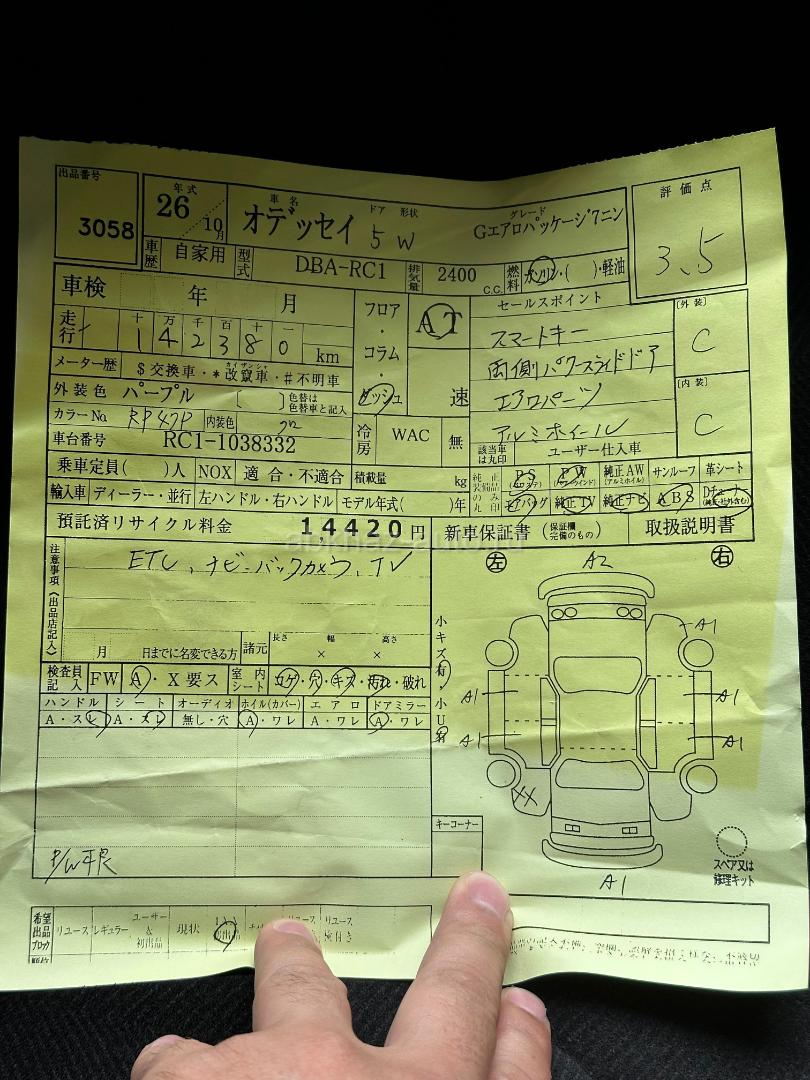 出品番号
3058
年式
26
10月
車名
オデッセイ
ドア 形状
5 W
グレード
Gエアロパッケージ7ニン
評価点
3.5
車歴
自家用
型式
DBA-RC1
排気量
2400
C.C.
燃料
ガソリン・( )・軽油
車検
年 月
走行
十 万 千 百 十 一
1 4 2 3 8 0 km
メーター歴
$交換車・*改竄車・#不明車
カイザンシャ
外装色
パープル
( )
色替は
色替車と記入
カラーNo.
RP47P
内装色
クロ
車台番号
RC1-1038332
フロア・コラム・ダッシュ
AT
速
冷房
WAC
無
セールスポイント
スマートキー
両側パワースライドドア
エアロパーツ
アルミホイール
該当車は丸印
ユーザー仕入車
[外装]
C
[内装]
C
乗車定員( )人
NOX
適合・不適合
積載量
kg
輸入車
ディーラー・並行
左ハンドル・右ハンドル
モデル年式( )年
純正装備品のみ丸印
PS
PW
純正AW
(アルミホイール)
サンルーフ
革シート
エアバッグ
純正TV
純正ナビ
ABS
預託済リサイクル料金
14420円
新車保証書
(保証欄完備のもの)
取扱説明書
注意事項(出品店記入)
ETC、ナビ・バックカメラ、TV
月 日までに名変できる方
諸元
長さ 幅 高さ
× ×
検査員記入
FW
A・X要ス
室内シート
コゲ・穴・キズ・汚れ・破れ
ハンドル
シート
オーディオ
ホイル(カバー)
エアロ
ドアミラー
A・スレ
A・スレ
無し・穴
A・ワレ
A・ワレ
A・ワレ
P/W不良
小キズ有・小U有
左
右
A2
A1
A1
A1
A1
A1
XX
A1
キーコーナー
スペア又は
修理キット
希望出品ブロック
リユース
レギュラー
ユーザー
&
初出品
現状
リユース